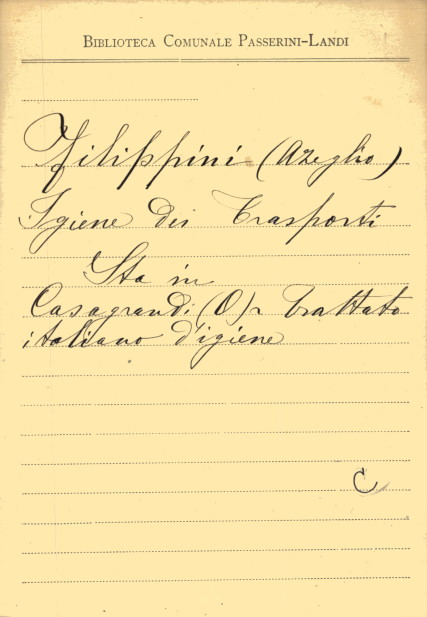 BIBLIOTECA COMUNALE PASSERINI-LANDI
Filippini (Azeglio)
Igiene dei Trasporti
Sta in
Casagrandi (O)- Trattato
italiano d'igiene
C